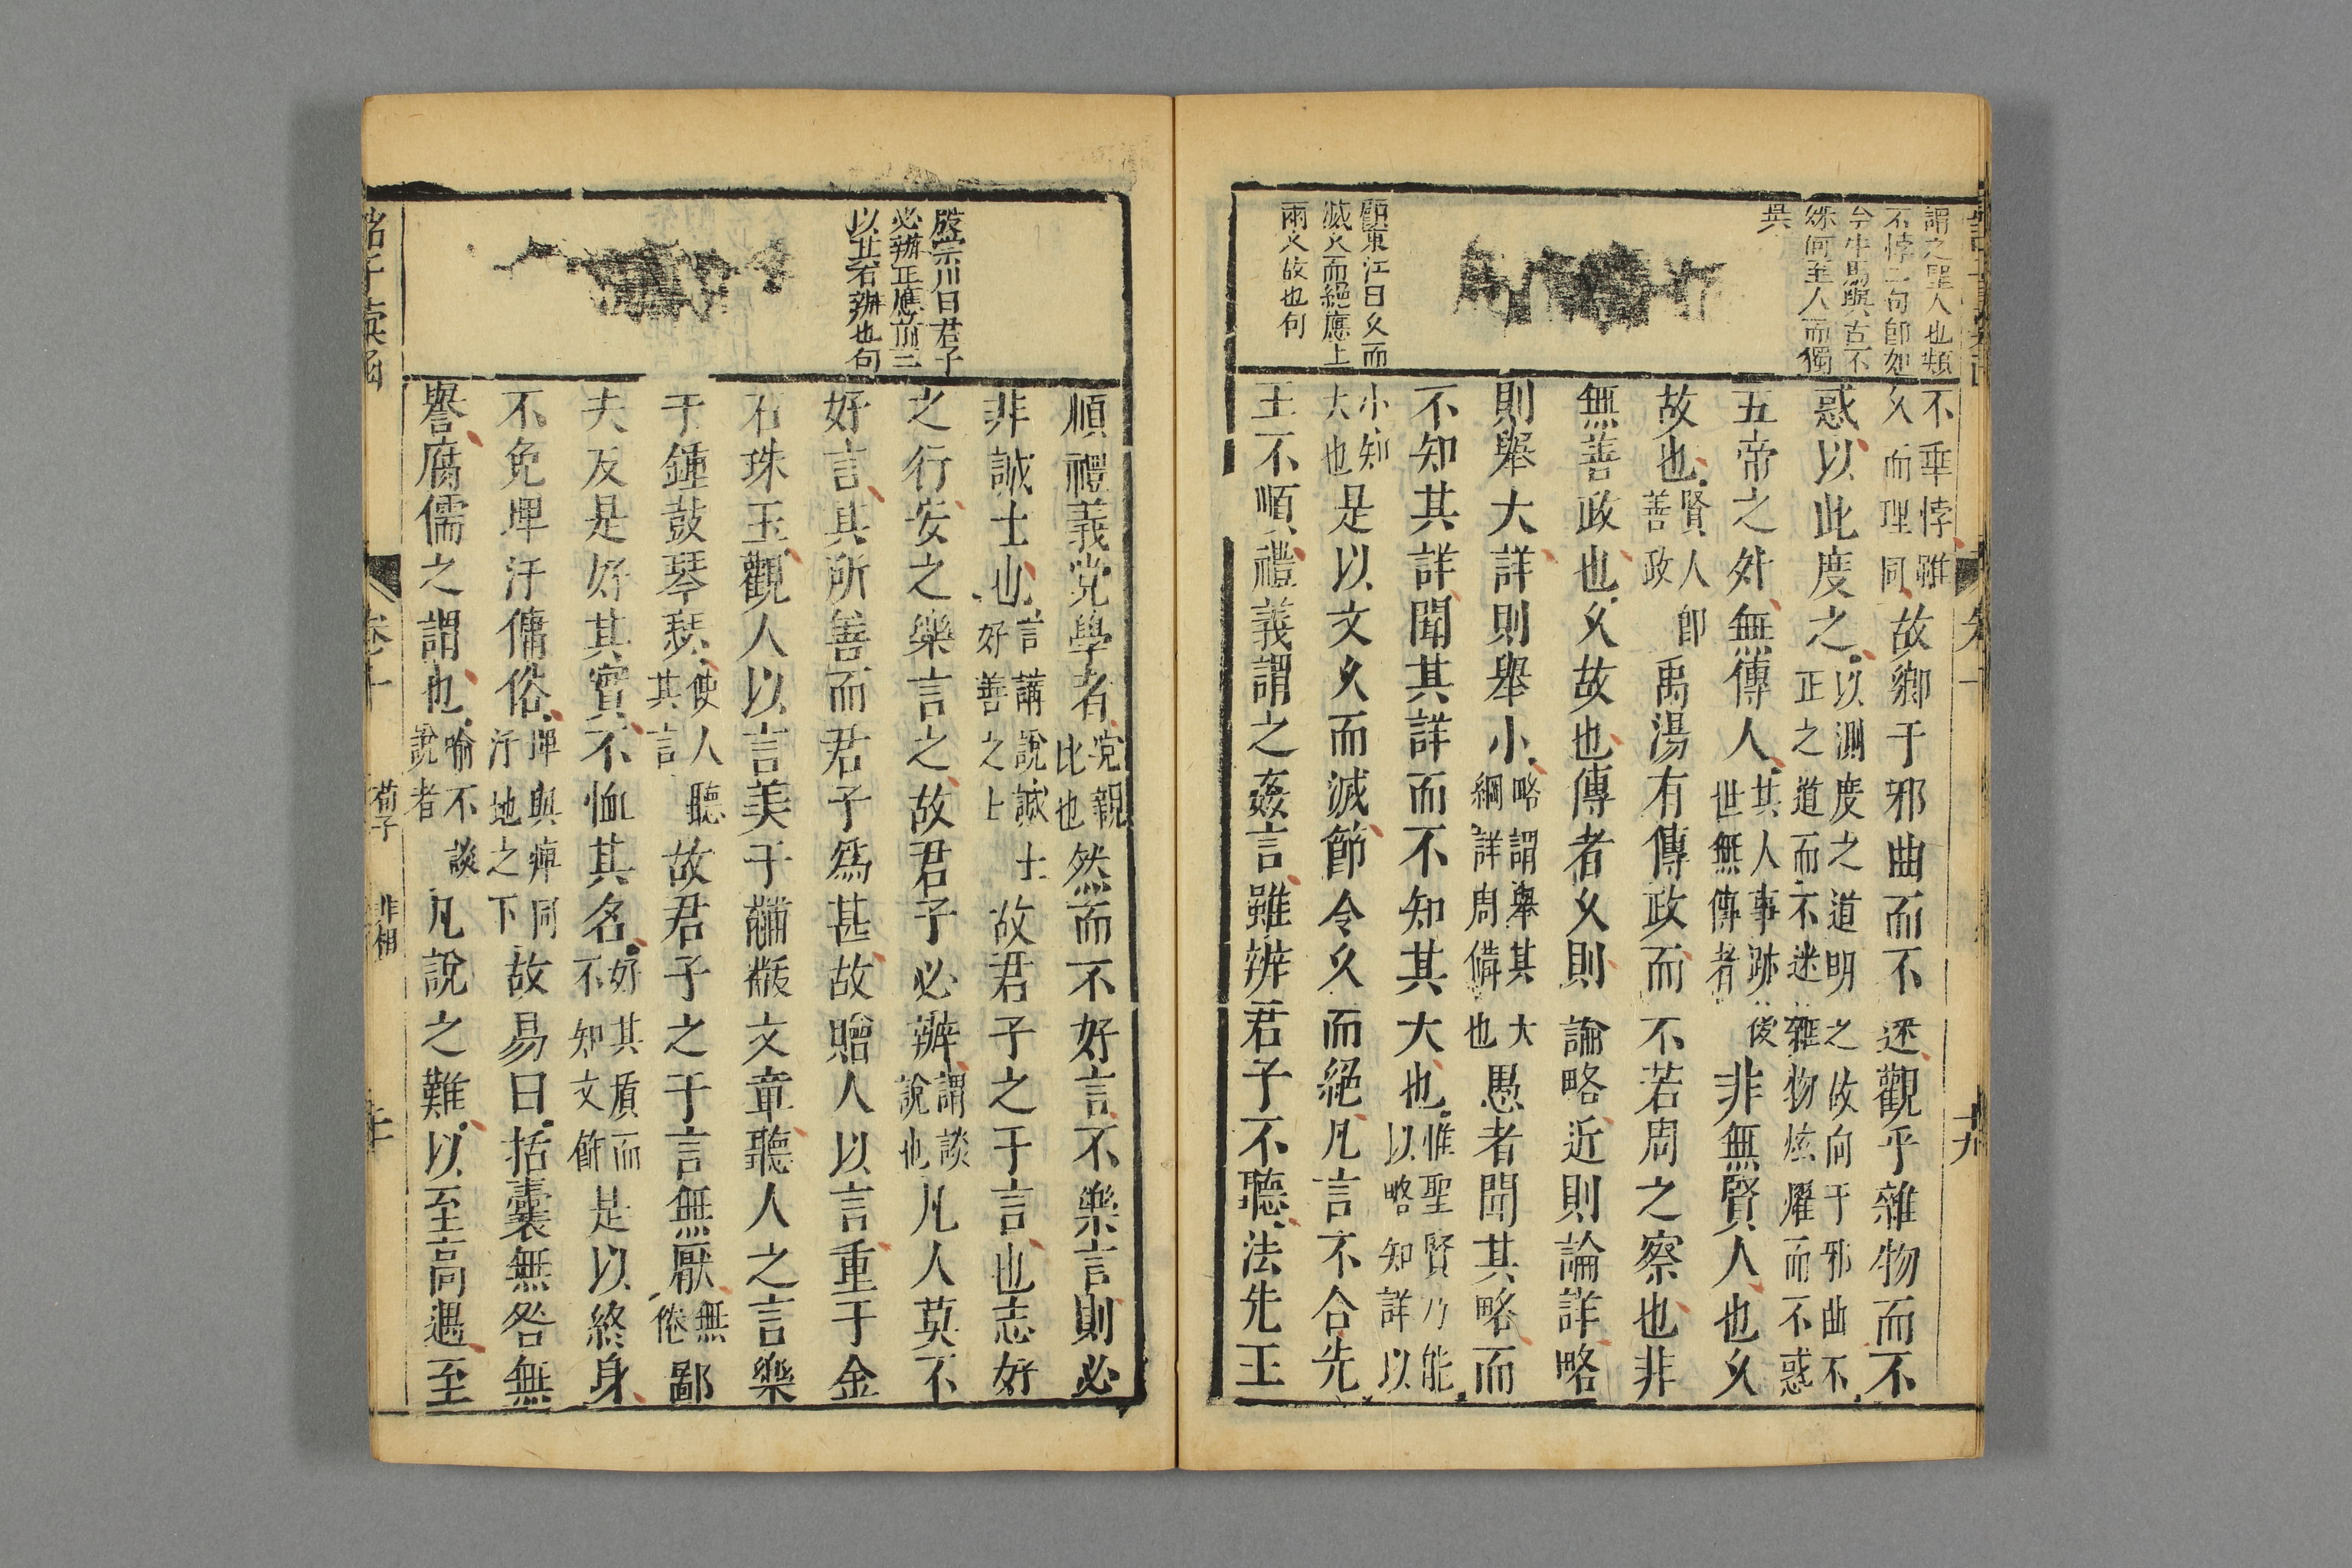 謂之聖人也類
不悖二句即如
今牛馬與古不
殊何至人而獨
異
顧東江曰久而
滅久而絕應上
兩久故也句
不乖悖雖
久而理同故鄉于邪曲而不迷觀乎雜物而不
惑以此度之以測度之道明之故向于邪曲不
正之道而不迷雜物炫燿而不惑
五帝之外無傳人其人事跡後
世無傳者非無賢人也久
故也賢人即
善政禹湯有傳政而不若周之察也非
無善政也久故也傳者久則論略近則論詳略
則舉大詳則舉小略謂舉其大
綱詳周備也愚者聞其略而
不知其詳聞其詳而不知其大也惟聖賢乃能
以略知詳以
小知
大也是以文久而滅節令久而絕凡言不合先
王不順禮義謂之姦言雖辨君子不聽法先王
卷十
十九
盛宗川曰君子
必辨正應前三
以其有辨也句
順禮義党學者党親
比也然而不好言不樂言則必
非誠士也言講說誠士
好善之上故君子之于言也志好
之行安之樂言之故君子必辨謂談
說也凡人莫不
好言其所善而君子為甚故贈人以言重于金
石珠玉觀人以言美于黼黻文章聽人之言樂
于鍾鼓琴瑟使人聽
其言故君子之于言無厭無
倦鄙
夫反是好其實不恤其名好其質而
不知文飾是以終身
不免埤汙傭俗埤與痺同
汙地之下故易曰括囊無咎無
譽腐儒之謂也喻不談
說者凡說之難以至高遇至
卷十
荀子
非相